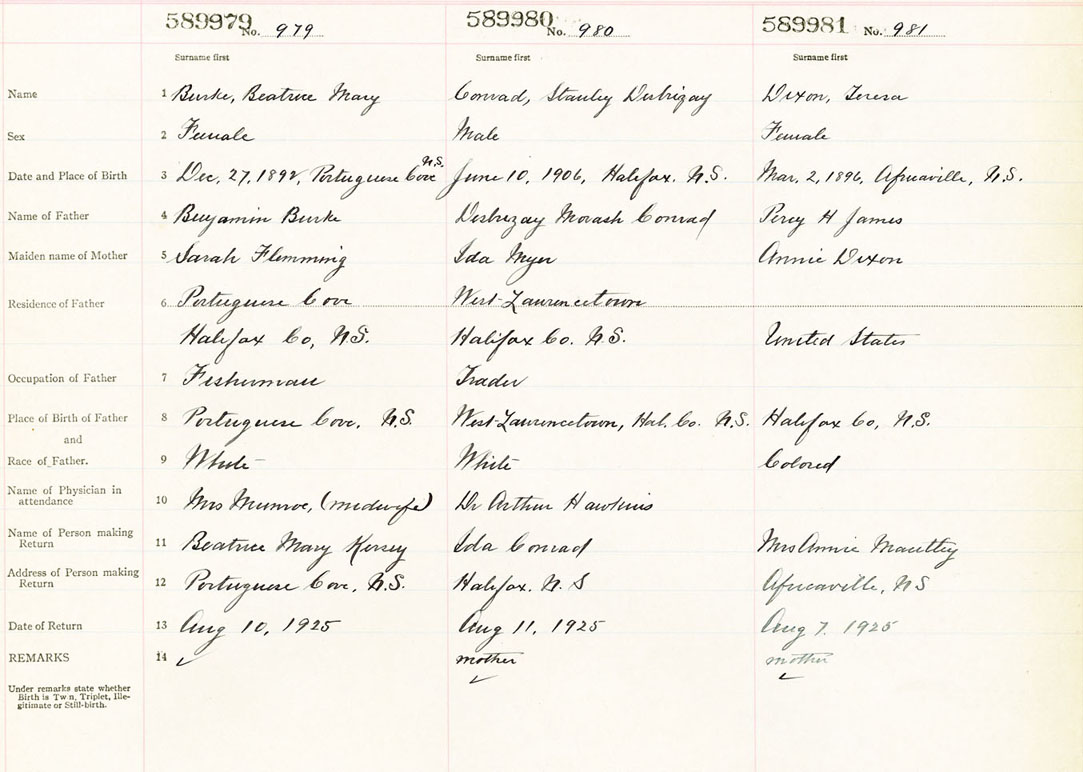 589979 No. 979 589980 No. 980 589981 No. 981
Surname first Surname first Surname first
Name 1 Burke, Beatrice Mary Conrad, Stanley Desbrizay Dixon, Teresa
Sex 2 Female Male Female
N.S.
Date and Place of Birth 3 Dec, 27, 1892, Portuguese Cove June 10, 1906, Halifax. N.S. Mar. 2, 1896, Africaville, N.S.
Name of Father 4 Benjamin Burke Desbrizay Morash Conrad Percy H James
Maiden name of Mother 5 Sarah Flemming Ida Myer Annie Dixon
Residence of Father 6 Portuguese Cove West Lawrencetown
Halifax Co, N.S. Halifax Co. N.S. United States
Occupation of Father 7 Fisherman Trader
Place of Birth of Father 8 Portuguese Cove, N.S. West Lawrencetown, Hal. Co. N.S. Halifax Co, N.S.
and
Race of Father. 9 White White Colored
Name of Physician in
attendance 10 Mrs Munroe, (midwife) Dr Arthur Hawkins
Name of Person making
Return 11 Beatrice Mary Kersey Ida Conrad Mrs Annie
Address of Person making
Return 12 Portuguese Cove, N.S. Halifax. N.S Africaville, NS
Date of Return 13 Aug 10, 1925 Aug 11, 1925 Aug 7. 1925
REMARKS 14 ✓ mother mother
✓ ✓
Under remarks state whether
Birth is Twin, Triplet, Ille-
gitimate or Still-birth.